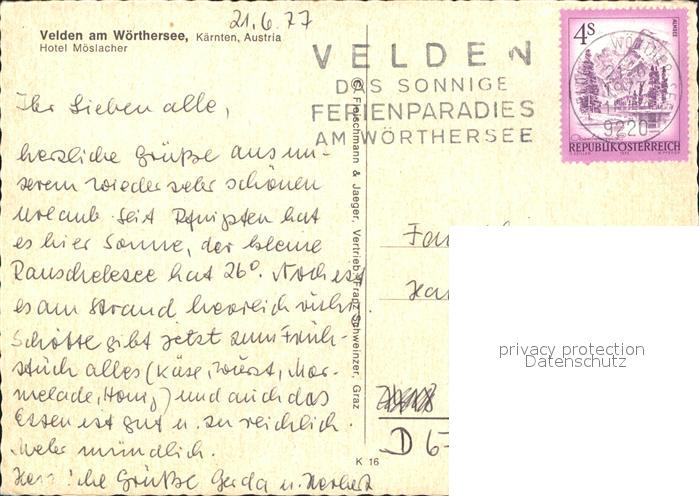 21.6.77
Velden am Wörthersee, Kärnten, Austria
Hotel Möslacher
VELDEN
DAS SONNIGE
FERIENPARADIES
AM WÖRTHERSEE
4S
ALMSEE
9220
REPUBLIK ÖSTERREICH
Ihr Lieben alle,
herzliche Grüße aus un-
serem wieder sehr schönen
Urlaub. Seit Pfingsten hat
es hier Sonne, der kleine
Rauschelesee hat 26°. Noch ist
es am Strand herrlich ruhig.
gibt jetzt zum Früh-
stück alles (Käse, Wurst, Mar-
melade, Honig) und auch das
Essen ist gut u. zu reichlich.
Mehr mündlich.
Herzliche Grüße Gerda u. Herbert
© Fleischmann & Jaeger, Vertrieb Franz Schweinzer, Graz
K 16
D 6-
privacy protection
Datenschutz